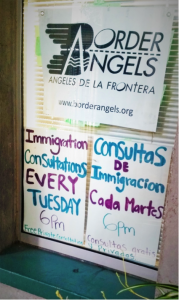 BORDER
ANGELS
ANGELES DE LA FRONTERA
www.borderangels.org
Immigration
Consultations
EVERY
TUESDAY
6pm
Free
Consultas
DE
Immigracion
Cada Martes
6pm
Consultas gratis